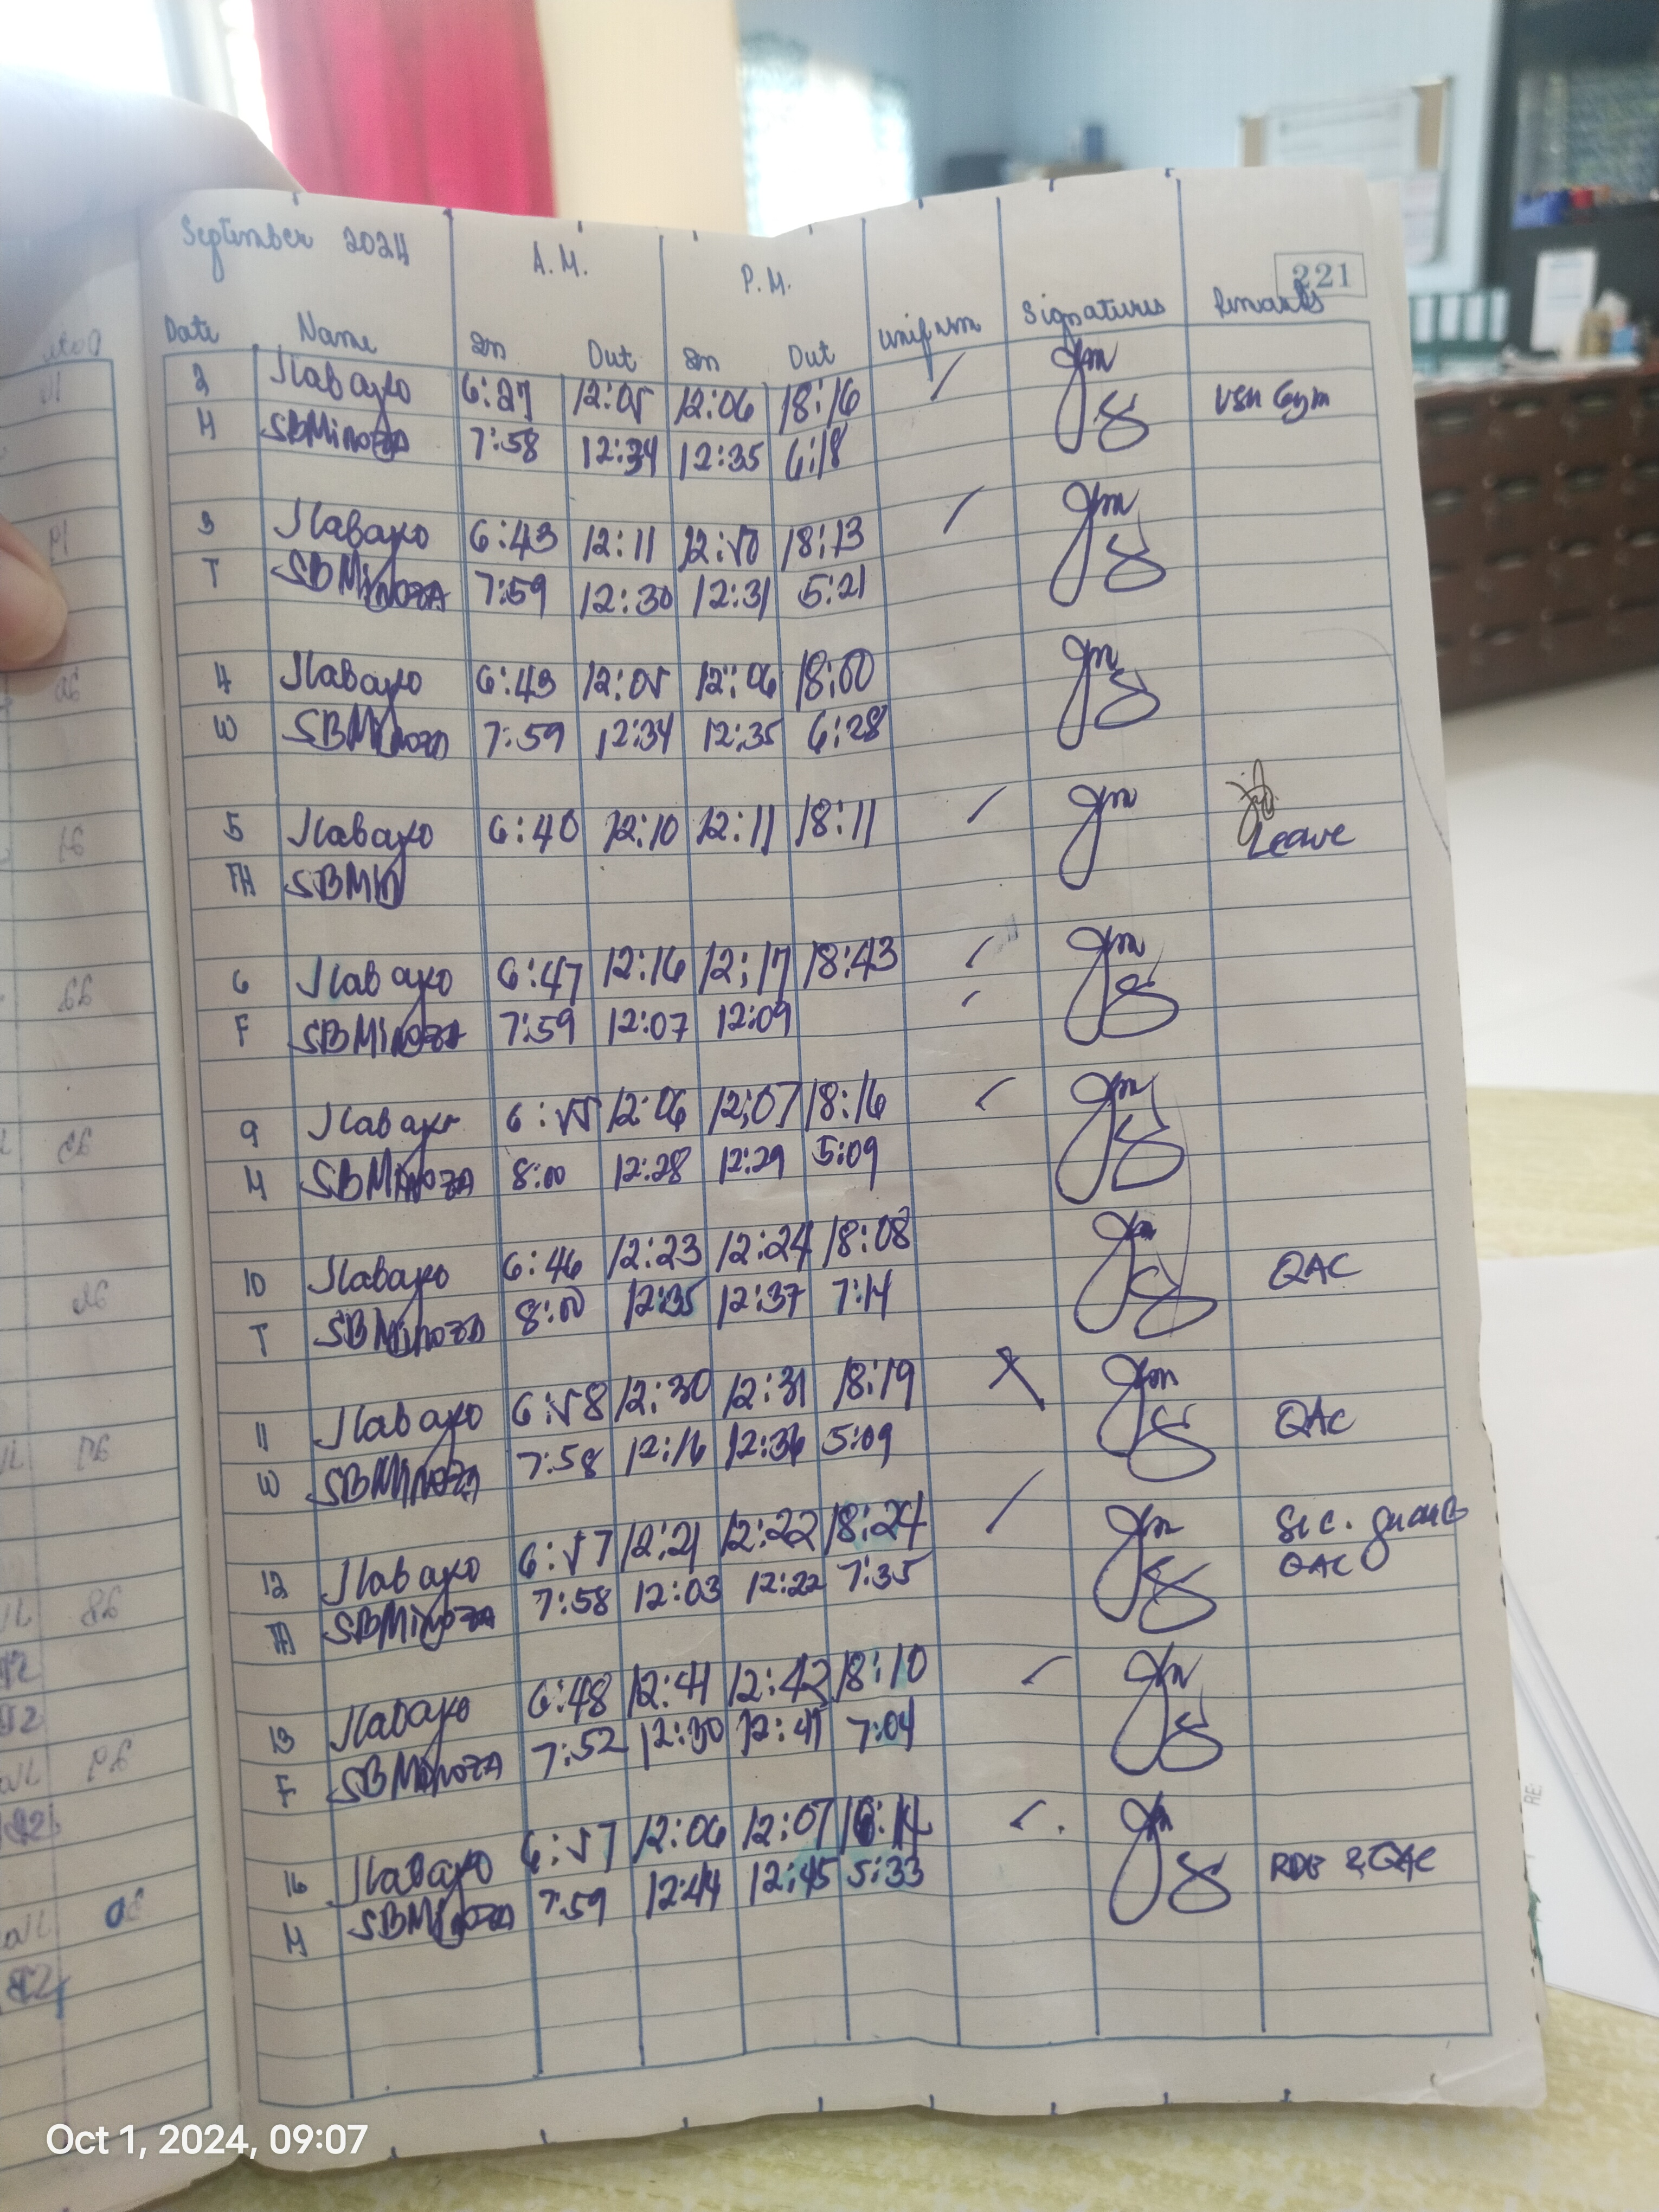 September 2024 A.M. P.M. 221
Date Name In Out In Out Uniform Signatures Remarks
2 Jlabayo 6:27 12:05 12:06 18:16 /
M SBMinoza 7:58 12:34 12:35 6:18
3 Jlabayo 6:43 12:11 12:50 18:13 /
T SBMinoza 7:59 12:30 12:31 5:21
4 Jlabayo 6:43 12:05 12:06 18:00
W SBMinoza 7:59 12:34 12:35 6:28
5 Jlabayo 6:40 12:10 12:11 18:11 /
TH SBMin Leave
6 Jlabayo 6:47 12:16 12:17 18:43 /
F SBMinoza 7:59 12:07 12:09 /
9 Jlabayo 6:55 12:06 12:07 18:16 /
M SBMinoza 8:00 12:28 12:29 5:09
10 Jlabayo 6:46 12:23 12:24 18:08 QAC
T SBMinoza 8:00 12:35 12:37 7:14
11 Jlabayo 6:58 12:30 12:31 18:19 X QAC
W SBMinoza 7:58 12:16 12:36 5:09
12 Jlabayo 6:57 12:21 12:22 18:24 / Sec. guards
TH SBMinoza 7:58 12:03 12:22 7:35 QAC
13 Jlabayo 6:48 12:41 12:42 18:10 /
F SBMinoza 7:52 12:30 12:41 7:04
16 Jlabayo 6:57 12:06 12:07 18:14 /
M SBMinoza 7:59 12:44 12:45 5:33 RDE & QAC
Oct 1, 2024, 09:07